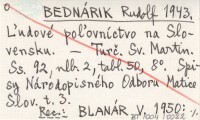 BEDNÁRIK Rudolf 1943.
Ľudové poľovníctvo na Slo-
vensku. — Turč. Sv. Martin.
Ss. 92, nlh 2, tabl. 50, 8°. Spi-
sy Národopisného Odboru Matice
Slov. t. 3.
Rec.: BLANÁR V. 1950: